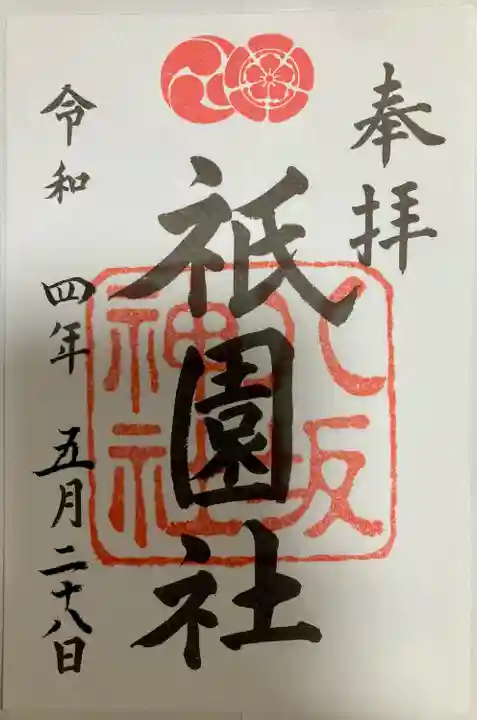 奉拝
祇園社
八坂
神社
令和 四年 五月 二十八日